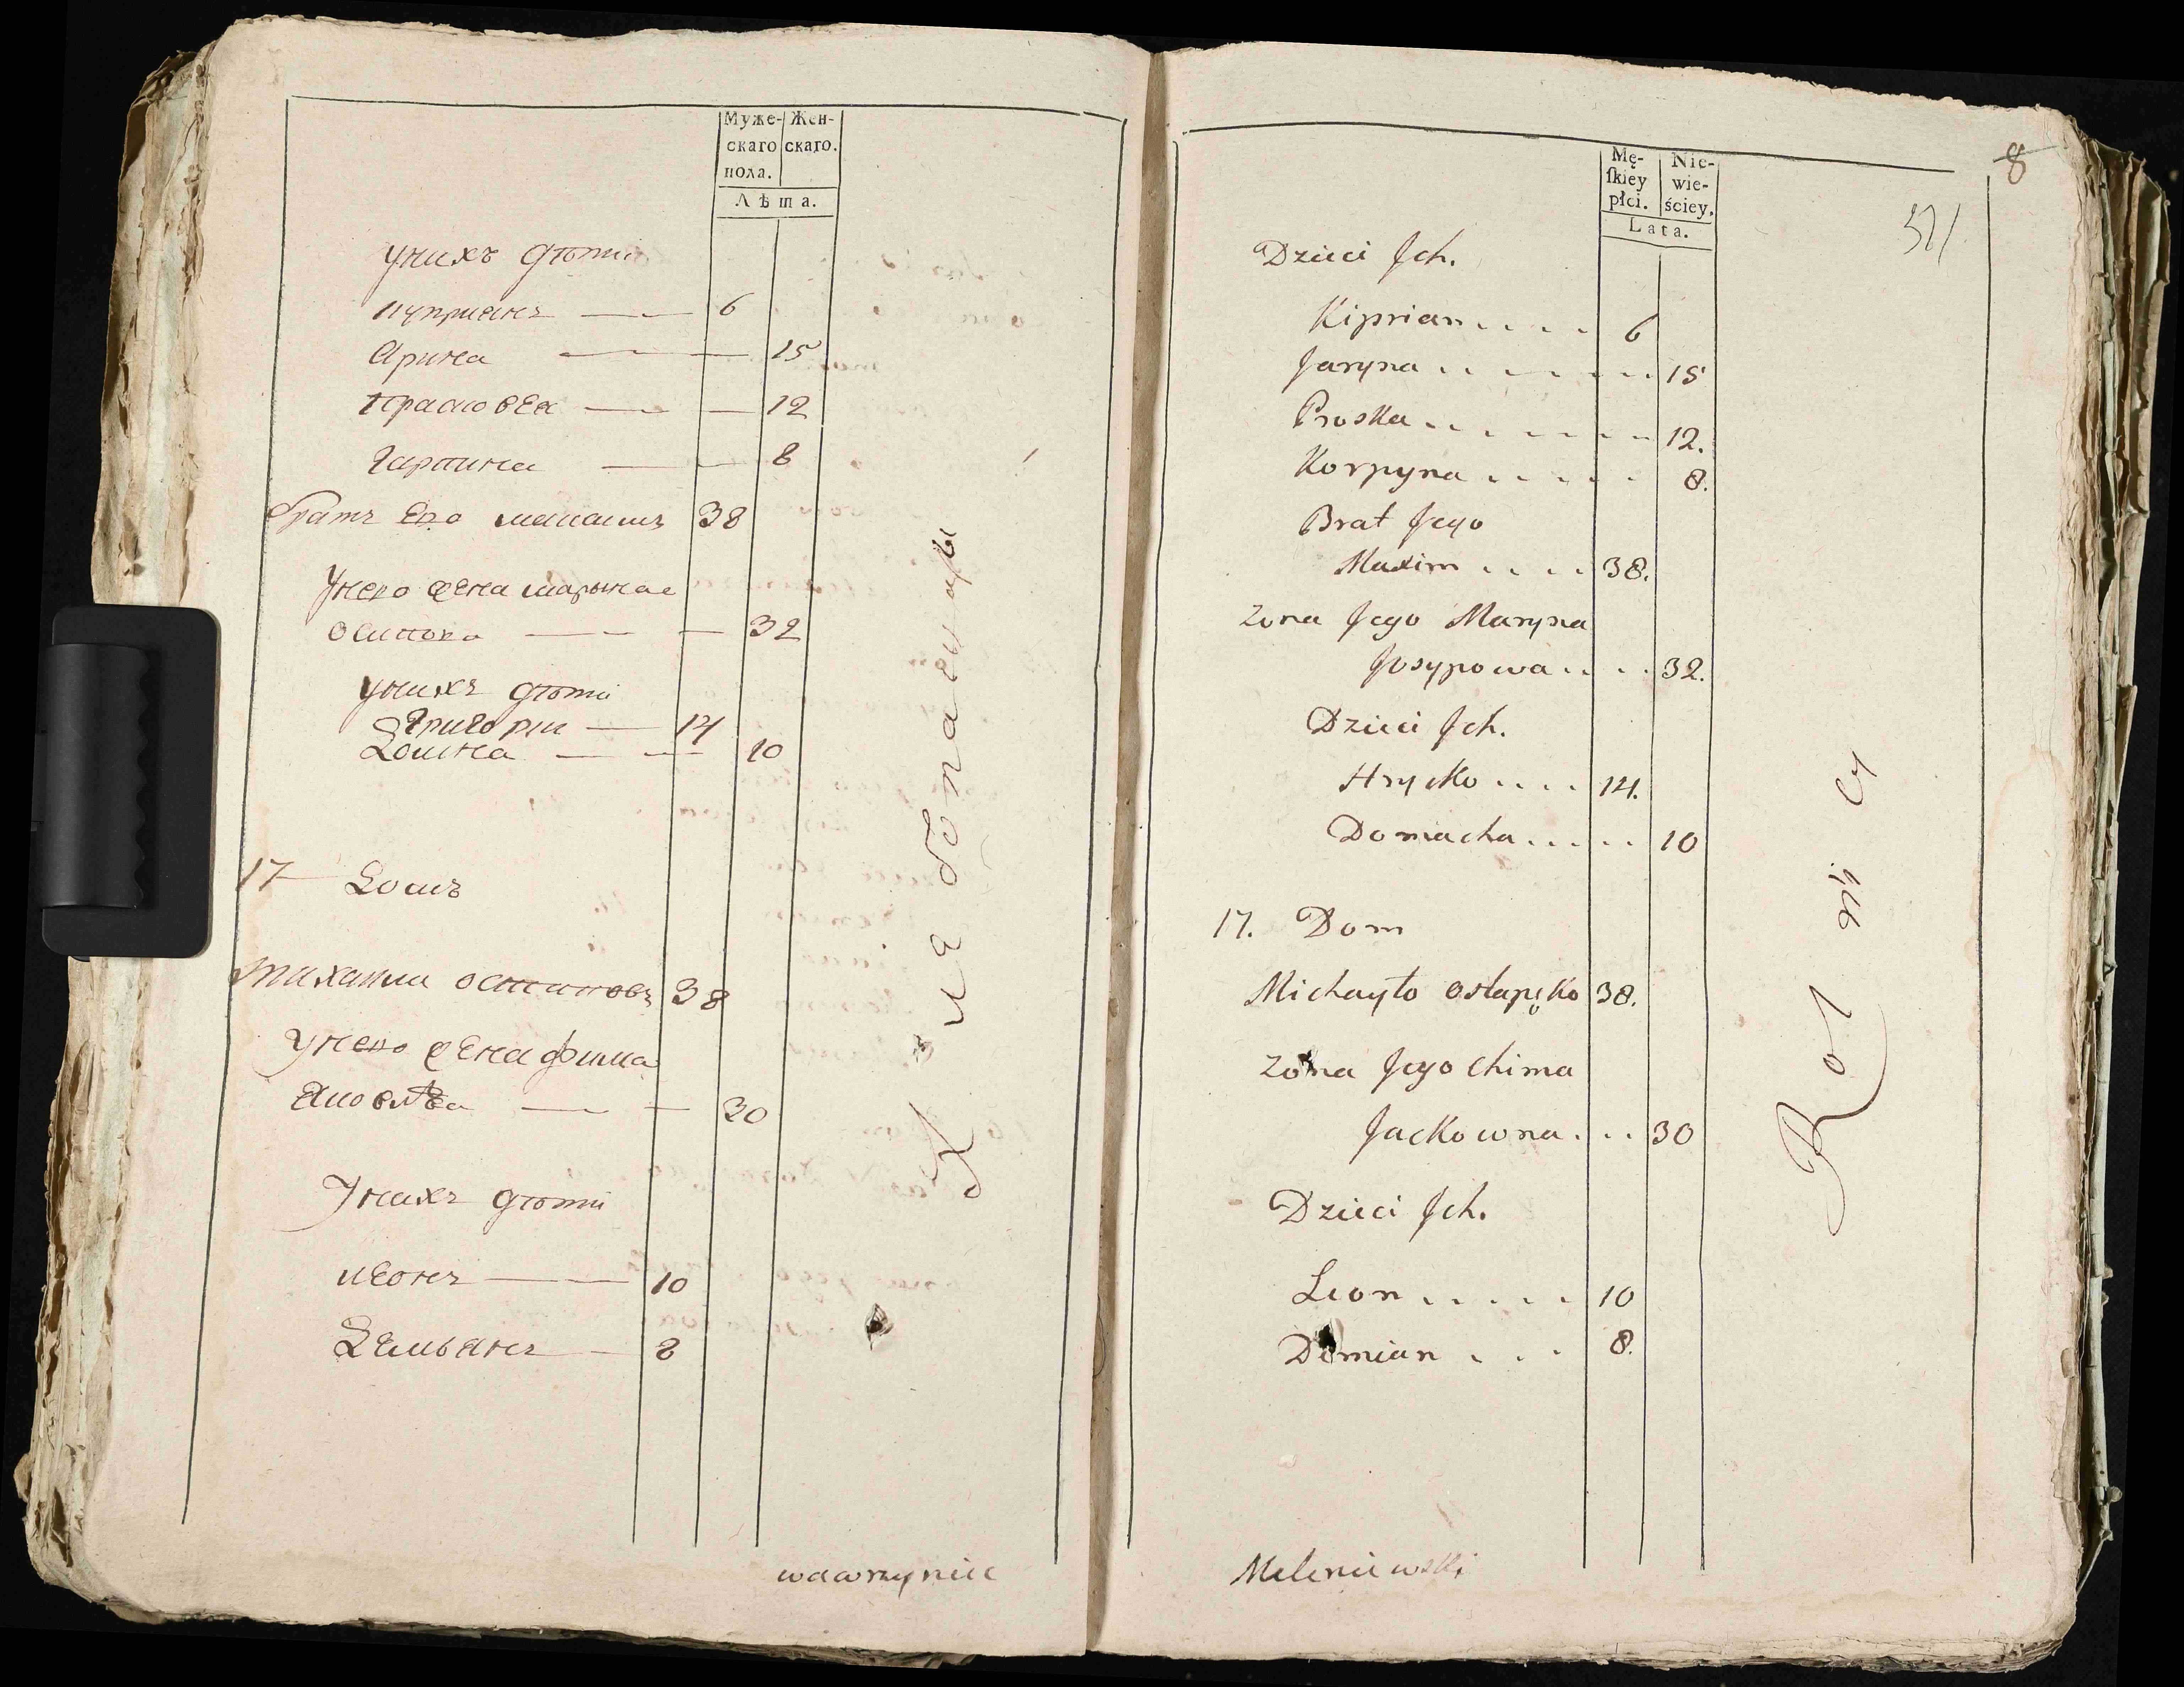 Муже- Жен-
скаго скаго.
пола.
Лѣта.
унихъ дѣти
куприанъ — 6
Арина — 15
Прасковея — 12
Гарпина — 8
братъ Его максимъ 38
Унего жена марына
Осипова — 32
унихъ дѣти
Григории — 14
Домна — 10
17 Домъ
Михаила остаповъ 38
Унего жена фима
Яковлева — 30
Унихъ дѣти
леонъ — 10
Демьянъ — 8
Хлебопашцы
wawrzyniec
Mę- Nie-
ſkiey wie-
płci. ściey.
Lata.
8
Dzieci Jch.
Kiprian .... 6
Jaryna ...... 15
Proska ...... 12.
Korpyna ..... 8.
Brat Jego
Maxim .... 38.
Zona Jego Maryna
Josypowa .... 32.
Dzieci Jch.
Hrycko .... 14.
Domacha ..... 10
17. Dom
Michayło Ostapęko 38.
Zona Jego Chima
Jackowna ... 30
Dzieci Jch.
Leon ..... 10
Demian ... 8.
Rolnicy
Meleniewski